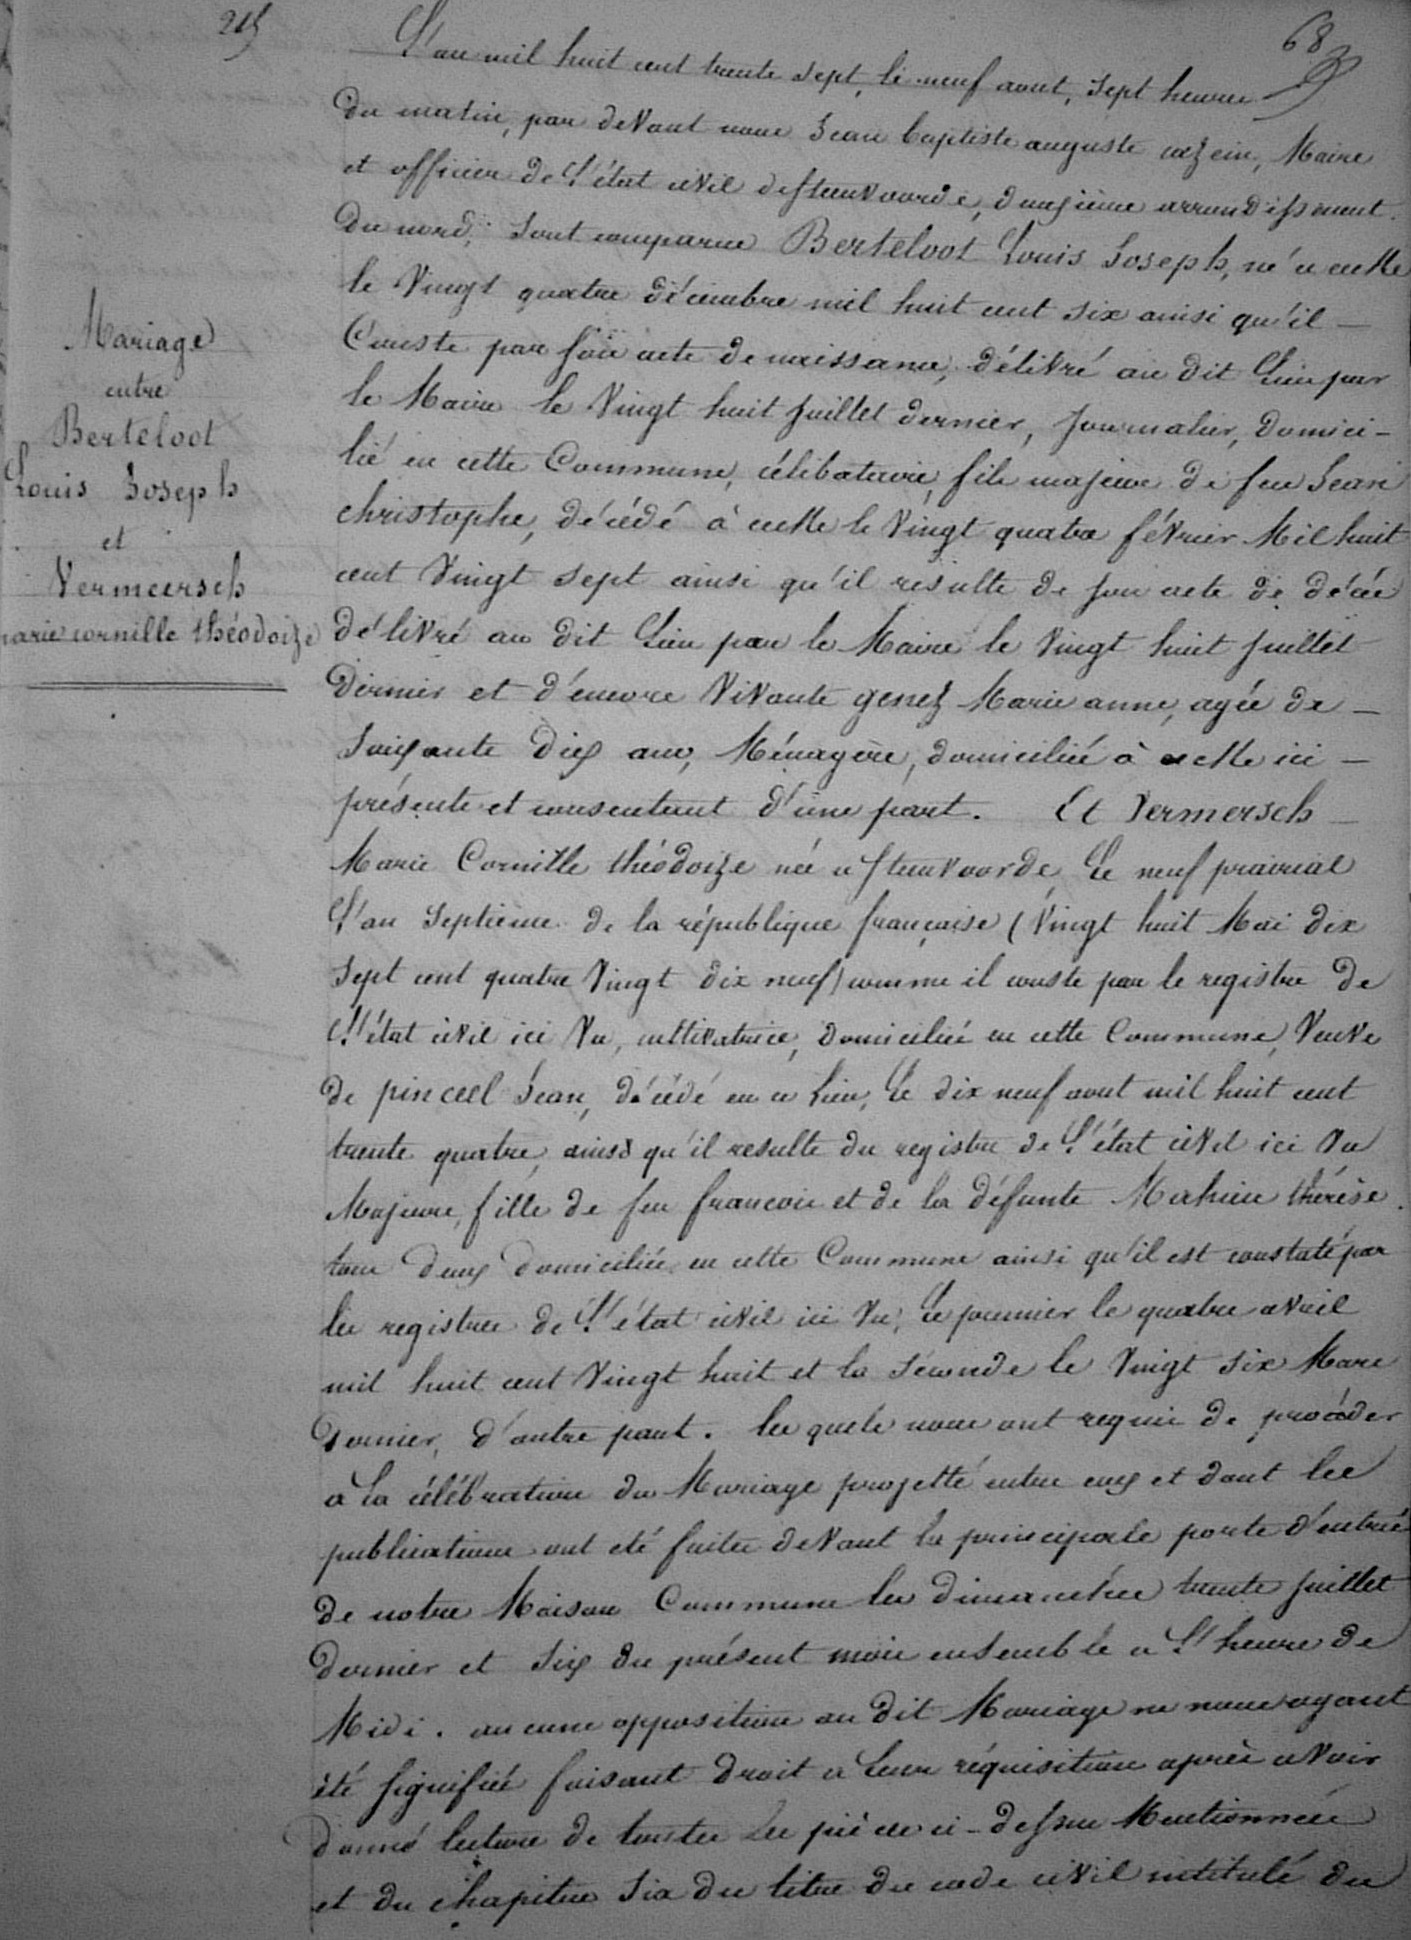 215
68
L'an mil huit cent trente sept, le neuf aout, sept heures
du matin, par devant nous Jean baptiste auguste cazein, Maire
et officier de l'état civil de steenvoorde, deuxième arrondissement
du nord, sont comparus Berteloot Louis Joseph, né a
le Vingt quatre décembre mil huit cent six ainsi qu'il
Conste par son acte de naissance, délivré au dit Lieu par
le Maire le Vingt huit juillet dernier, journalier, domici-
lié en cette Commune, célibataire, fils majeur de feu Jean
christophe, décédé à le Vingt quatre février Mil huit
cent Vingt sept ainsi qu'il resulte de son acte de décès
délivré au dit Lieu par le Maire le Vingt huit juillet
Dernier et d'encore Vivante genez Marie anne, agée de
soixante dix ans, Ménagère, domiciliée à ici
présente et consentant d'une part. Et Vermersch
Marie Cornille théodoize née a steenvoorde Le neuf prairial
L'an Septième de la république française (Vingt huit Mai dix
sept cent quatre Vingt dix neuf) comme il conste par le registre de
L'état civil ici Vu, cultivatrice, domiciliée en cette Commune, Veuve
de pinceel Jean, décédé en ce Lieu, Le dix neuf aout mil huit cent
trente quatre, ainsi qu'il resulte du registre de L'état civil ici Vu
Majeure, fille de feu francois et de la défunte thérèse.
tous deux domiciliés en cette Commune ainsi qu'il est constaté par
les registres de L'état civil ici Vu, Le premier le quatre avril
mil huit cent Vingt huit et la seconde le Vingt six Mars
Dernier, d'autre part. les quels nous ont requis de procéder
a La célébration du Mariage projetté entre eux et dont les
publications ont été faites devant la principale porte d'entrée
de notre Maison Commune les dimanches trente juillet
Dernier et six du présent mois ensemble a L'heure de
Midi. aucune opposition au dit Mariage ne nous ayant
été signifiée faisant droit a Leur réquisition après avoir
donné lecture de toutes Les pièces ci-dessus Mentionnées
et du chapitre six du titre du code civil intitulé du
Mariage
entre
Berteloot
Louis Joseph
et
Vermeersch
marie cornille théodoize